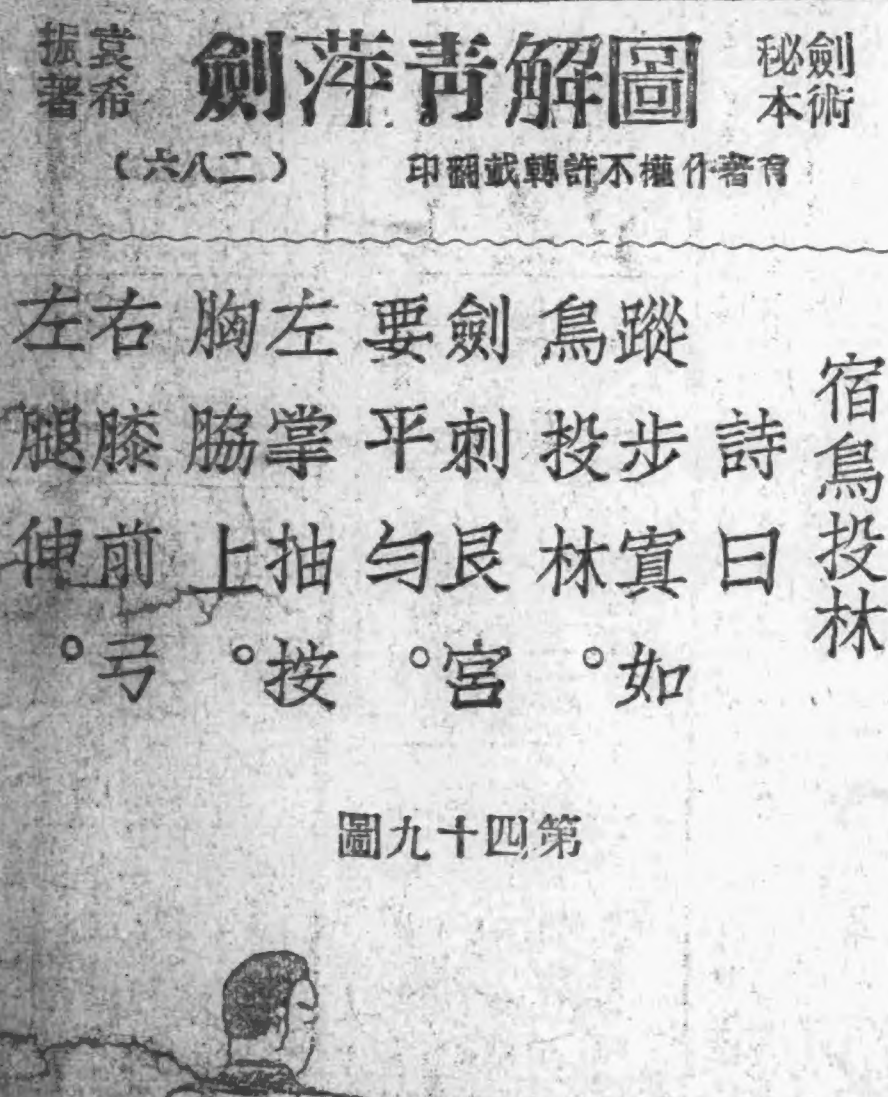 劍術
秘本
圖解青萍劍
袁希
振著
有著作權不許轉載翻印
(二八六)
宿鳥投林
詩曰
蹤步寘如
鳥投林。
劍刺艮宮
要平勻。
左掌抽按
胸脇上。
右膝前弓
左腿伸。
第四十九圖